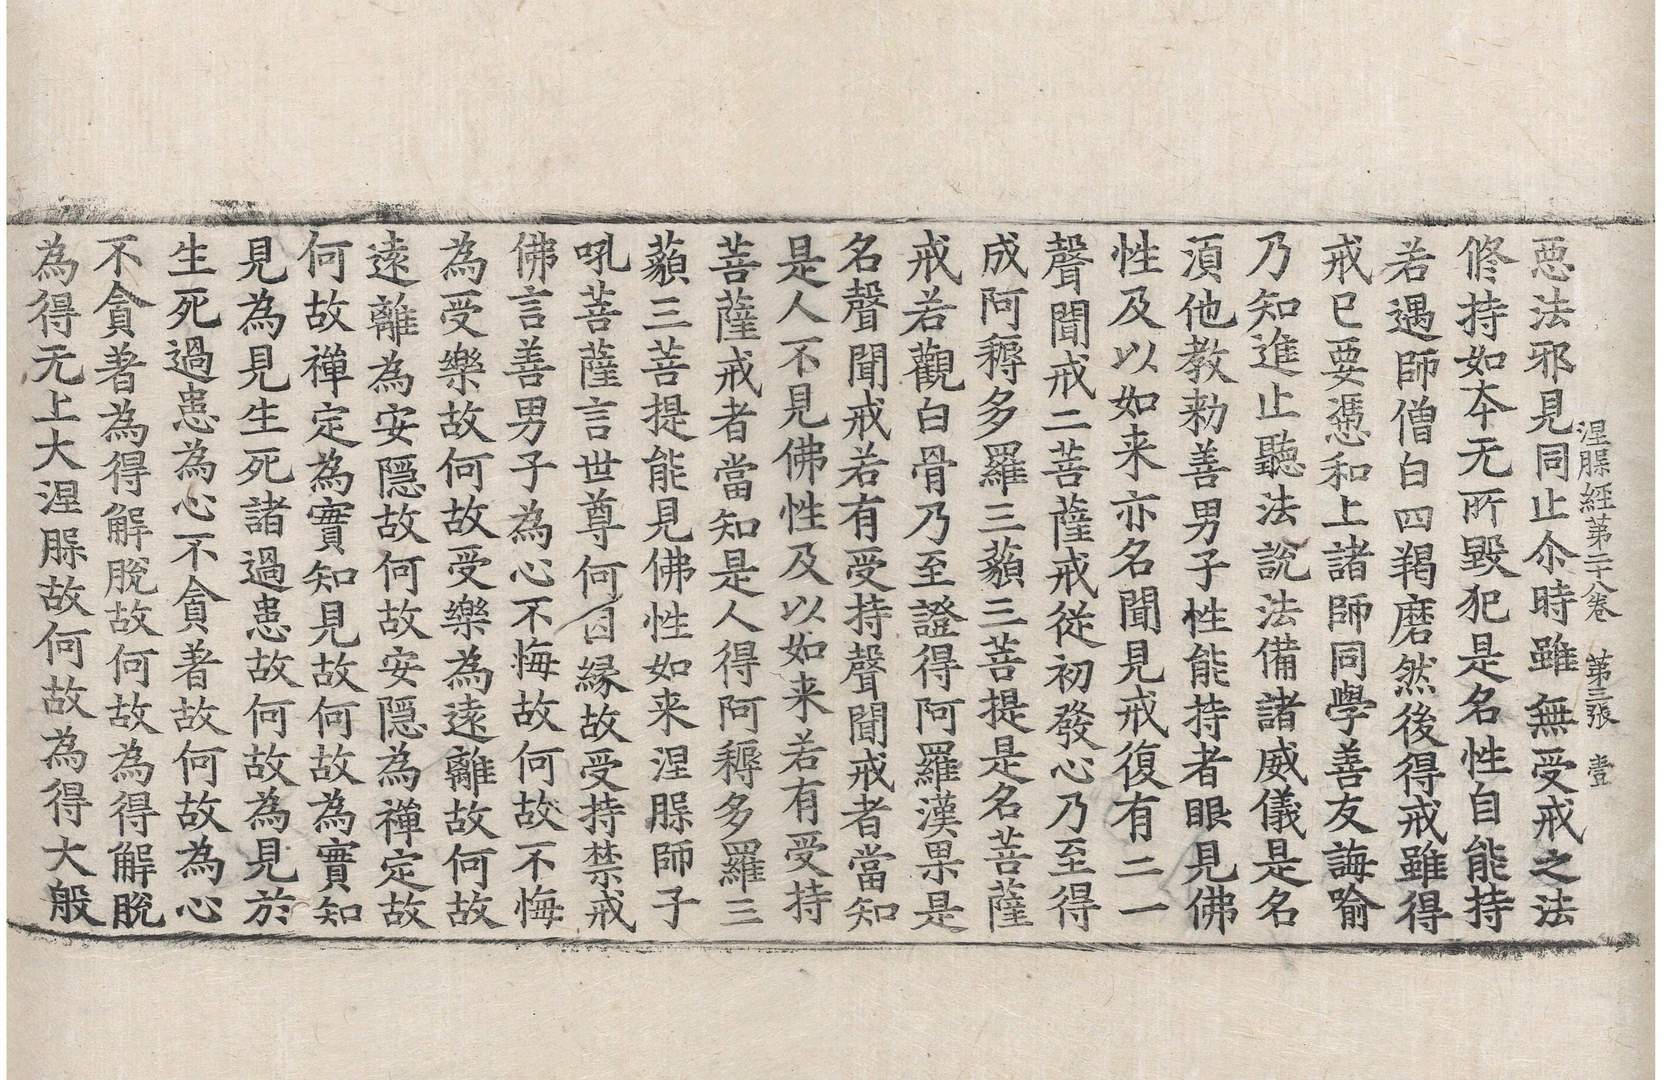 涅槃經第二十八卷　第三張　壹
惡法邪見同止尒時雖無受戒之法
修持如本无所毀犯是名性自能持
若遇師僧白四羯磨然後得戒雖得
戒已要憑和上諸師同學善友誨喻
乃知進止聽法說法備諸威儀是名
湏他教勑善男子性能持者眼見佛
性及以如来亦名聞見戒復有二一
聲聞戒二菩薩戒從初發心乃至得
成阿耨多羅三藐三菩提是名菩薩
戒若觀白骨乃至證得阿羅漢果是
名聲聞戒若有受持聲聞戒者當知
是人不見佛性及以如来若有受持
菩薩戒者當知是人得阿耨多羅三
藐三菩提能見佛性如来涅槃師子
吼菩薩言世尊何因緣故受持禁戒
佛言善男子為心不悔故何故不悔
為受樂故何故受樂為遠離故何故
遠離為安隱故何故安隱為禪定故
何故禪定為實知見故何故為實知
見為見生死諸過患故何故為見於
生死過患為心不貪著故何故為心
不貪著為得解脫故何故為得解脫
為得无上大涅槃故何故為得大般